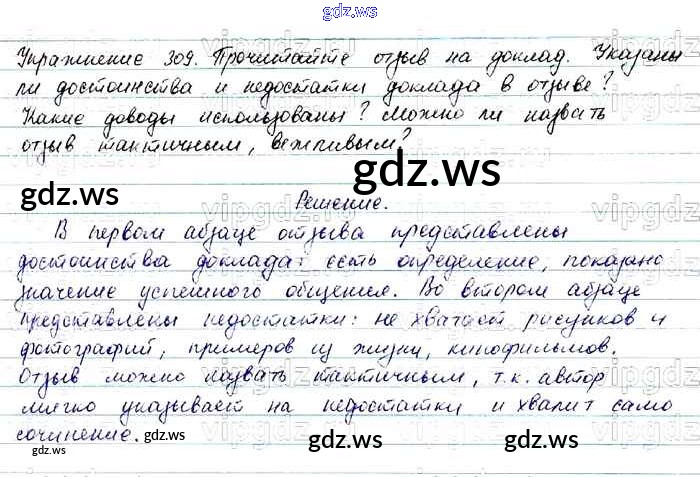 gdz.ws
Упражнение 309. Прочитайте отзыв на доклад. Указаны
ли достоинства и недостатки доклада в отзыве?
Какие доводы использованы? Можно ли назвать
отзыв тактичным, вежливым?
gdz.ws
gdz.ws
Решение.
В первом абзаце отзыва представлены
достоинства доклада: есть определение, показано
значение успешного общения. Во втором абзаце
представлены недостатки: не хватает рисунков и
фотографий, примеров из жизни, кинофильмов.
Отзыв можно назвать тактичным, т.к. автор
мягко указывает на недостатки и хвалит само
сочинение.
gdz.ws
gdz.ws
gdz.ws